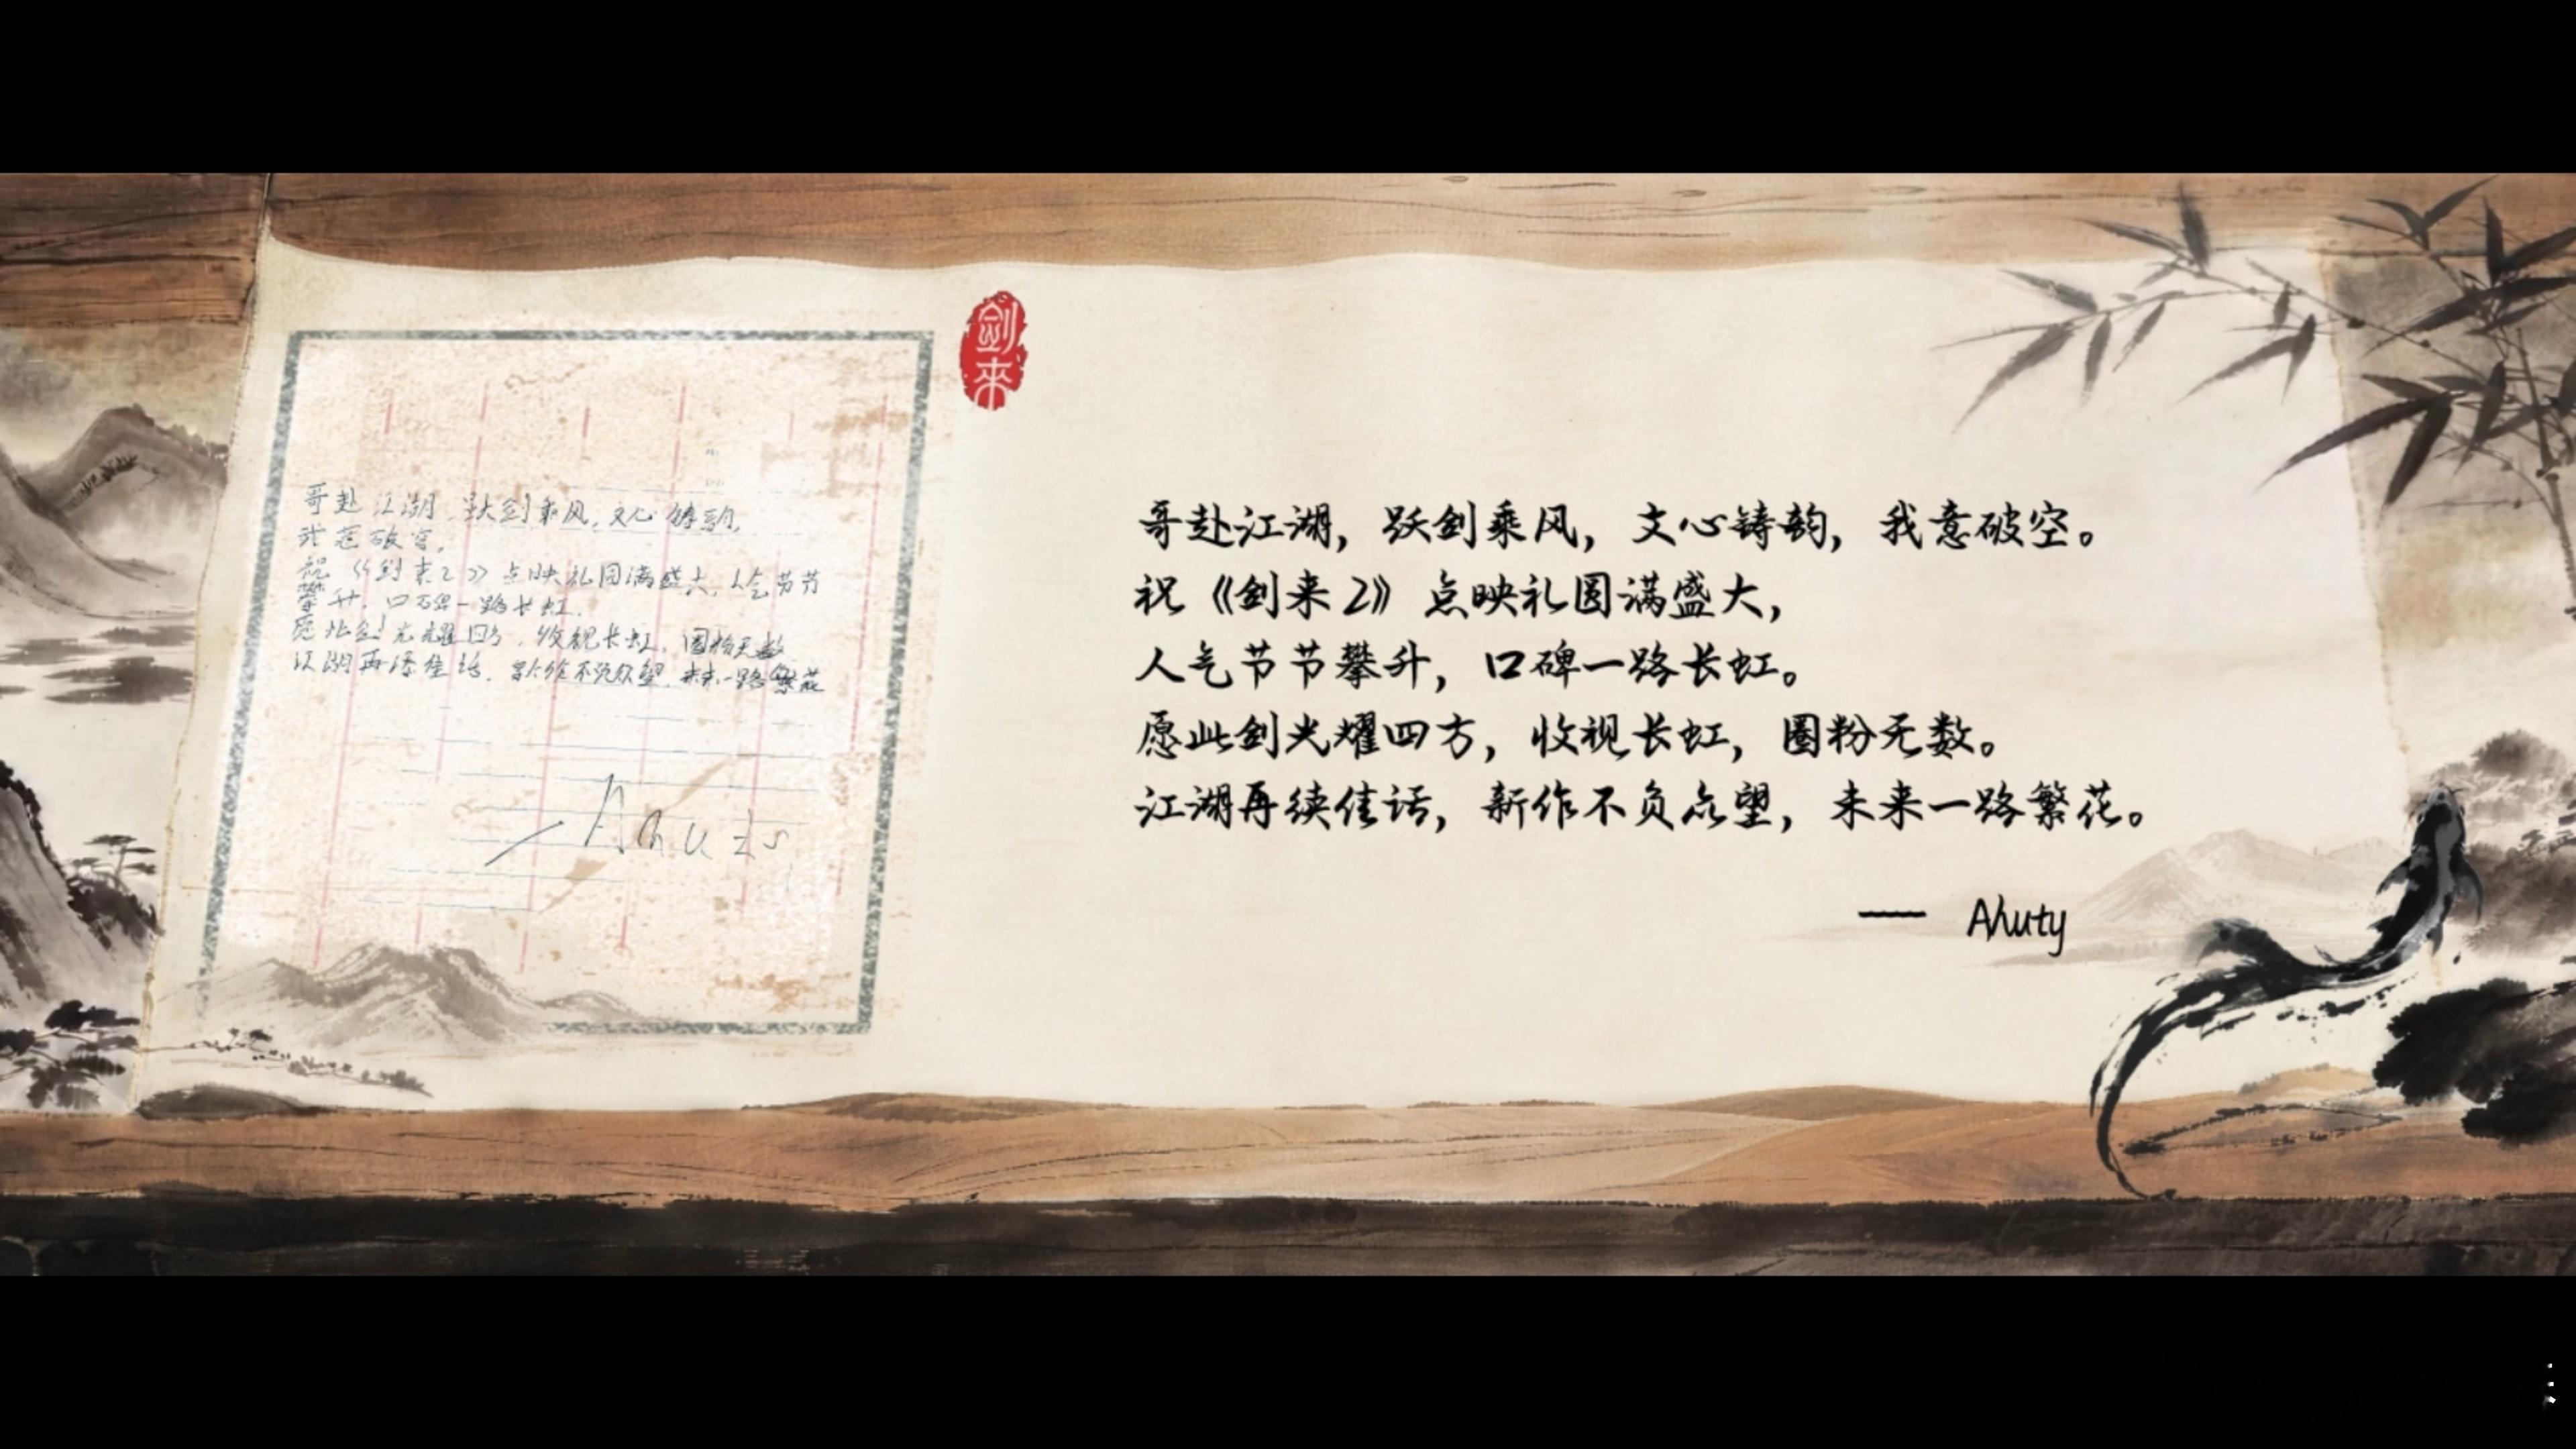 哥赴江湖，跃剑乘风，文心铸韵，
我意破空。
祝《剑来2》点映礼圆满盛大，人气节节
攀升，口碑一路长虹。
愿此剑光耀四方，收视长虹，圈粉无数
江湖再添佳话，新作不负众望，未来一路繁花
剑来
哥赴江湖，跃剑乘风，文心铸韵，我意破空。
祝《剑来2》点映礼圆满盛大，
人气节节攀升，口碑一路长虹。
愿此剑光耀四方，收视长虹，圈粉无数。
江湖再续佳话，新作不负众望，未来一路繁花。
— Ahuty